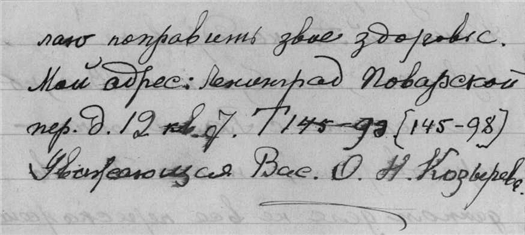 лаю поправить звое здоровье.
Мой адрес: Ленинград Поварской
пер. д. 12 кв. 7. Т 145-93 [145-98]
Уважающая Вас. О. Н. Козырева.